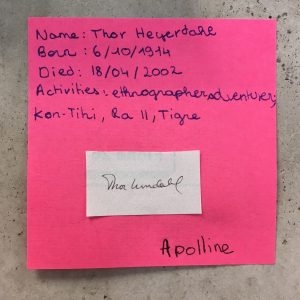 Name: Thor Heyerdahl
Born: 6/10/1914
Died: 18/04/2002
Activities: ethnographer, adventurer;
Kon-Tiki, Ra II, Tigre
Apolline